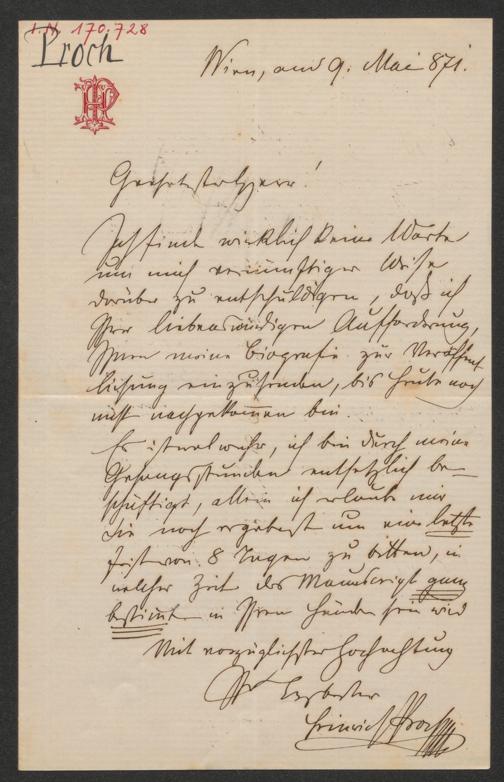 I.N. 170.728
Proch
HP
Wien, am 9. Mai 871.
Geehrtester Herr!
Ich finde wirklich keine Worte
um mich vernünftiger Weise
darüber zu entschuldigen, daß ich
Ihrer liebenswürdigen Aufforderung,
Ihnen meine Biografie zur Veröffent
lichung einzusenden, bis heute noch
nicht nachgekommen bin.
Es ist wol wahr, ich bin durch meine
Gesangsstunden entsetzlich be-
schäftigt, allein ich erlaube mir
Sie noch ergebenst um eine letzte
Frist von 8 Tagen zu bitten, in
welcher Zeit das Manuscript ganz
bestimt in Ihren Händen sein wird
Mit vorzüglichster Hochachtung
Ihr Ergebenster
Heinrich Proch